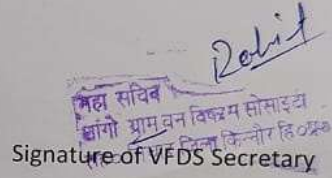 Rohit
महा सचिव
चांगो ग्राम वन विकास सोसाइटी
जिला किन्नौर हि०प्र०
Signature of VFDS Secretary